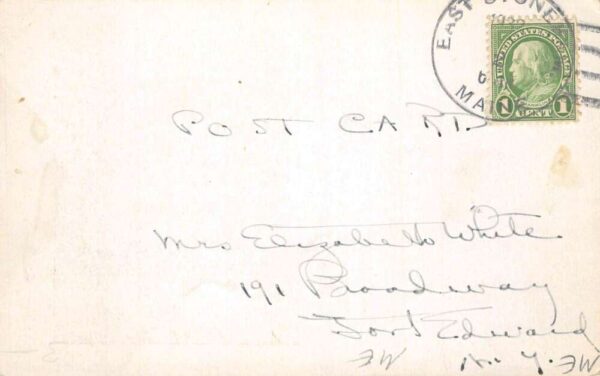 EAST STONE
1929
MAINE
UNITED STATES POSTAGE
1 CENT 1
POST CARD.
Mrs Elizabeth White
191 Broadway
Fort Edward
N. Y.
ME
ME